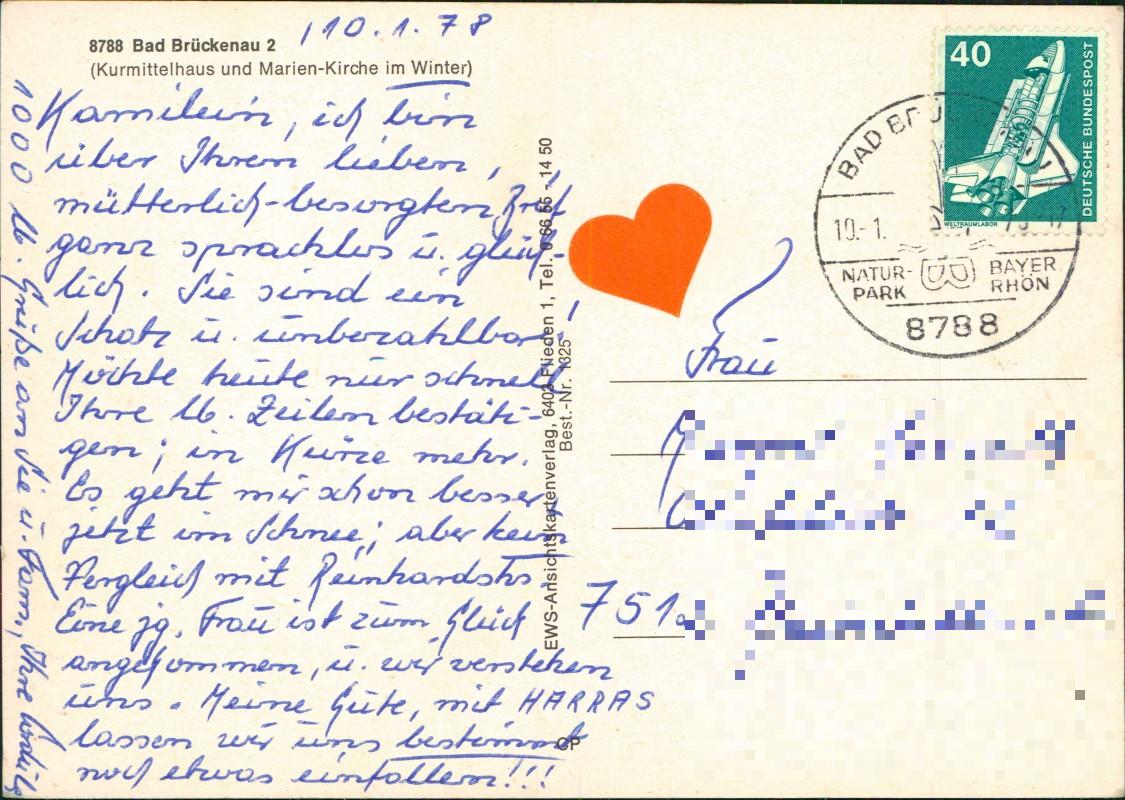 10.1.78
8788 Bad Brückenau 2
(Kurmittelhaus und Marien-Kirche im Winter)
ich bin
über Ihren lieben,
mütterlich-besorgten Brief
ganz sprachlos u. glück-
lich. Sie sind ein
Schatz u. unbezahlbar!
Möchte heute nur schnell
Ihre lb. Zeilen bestäti-
gen; in Kürze mehr.
Es geht mir schon besser,
jetzt im Schnee; aber kein
Vergleich mit Reinhardshs.
Eine jg. Frau ist zum Glück
angekommen, u. wir verstehen
uns. Meine Gute, mit HARRAS
lassen wir uns bestimmt
noch etwas einfallen!!!
1000 lb. Grüße an Sie u. Fam, Ihre
EWS-Ansichtskartenverlag, 6403 Flieden 1, Tel. 0 66 55 - 14 50
Best.-Nr. 1325
GP
40
DEUTSCHE BUNDESPOST
WELTRAUMLABOR
BAD BRÜ
10.-1.
NATUR-
PARK
BAYER.
RHÖN
8788
Frau
751